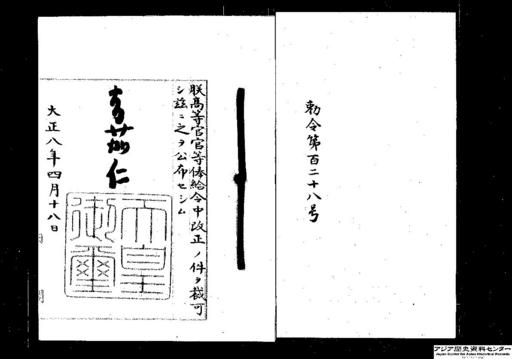 勅令第百二十八号
朕高等官官等俸給令中改正ノ件ヲ裁可
シ茲ニ之ヲ公布セシム
嘉仁
天皇御璽
大正八年四月十八日
アジア歴史資料センター
Japan Center for Asian Historical Records